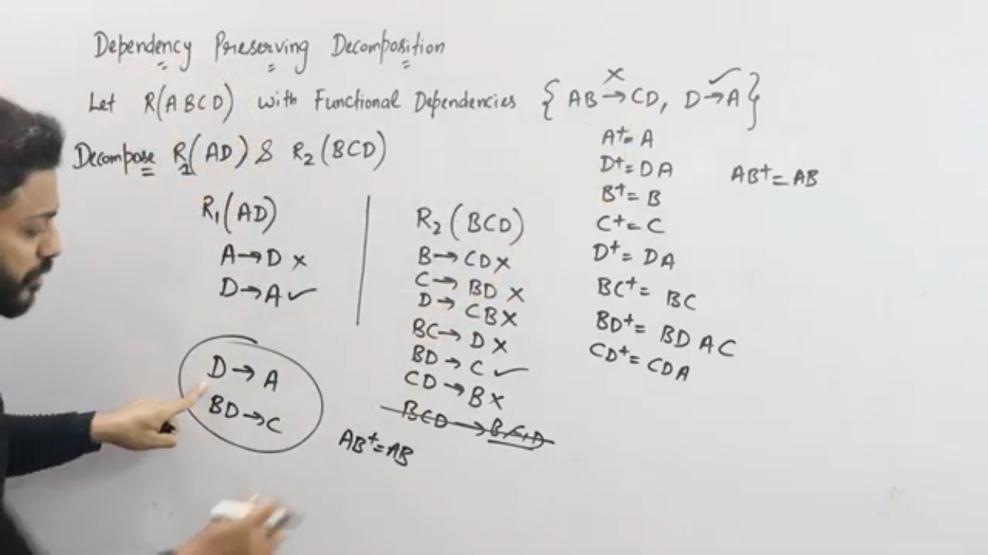 Dependency Preserving Decomposition
Let R(ABCD) with Functional Dependencies { AB → CD, D → A }
× ✓
Decompose R1(AD) & R2(BCD)
R1(AD)
A → D ×
D → A ✓
D → A
BD → C
AB+ = AB
R2(BCD)
B → CD ×
C → BD ×
D → CB ×
BC → D ×
BD → C ✓
CD → B ×
BCD → BCD
A+ = A
D+ = DA
B+ = B
C+ = C
D+ = DA
BC+ = BC
BD+ = BDAC
CD+ = CDA
AB+ = AB